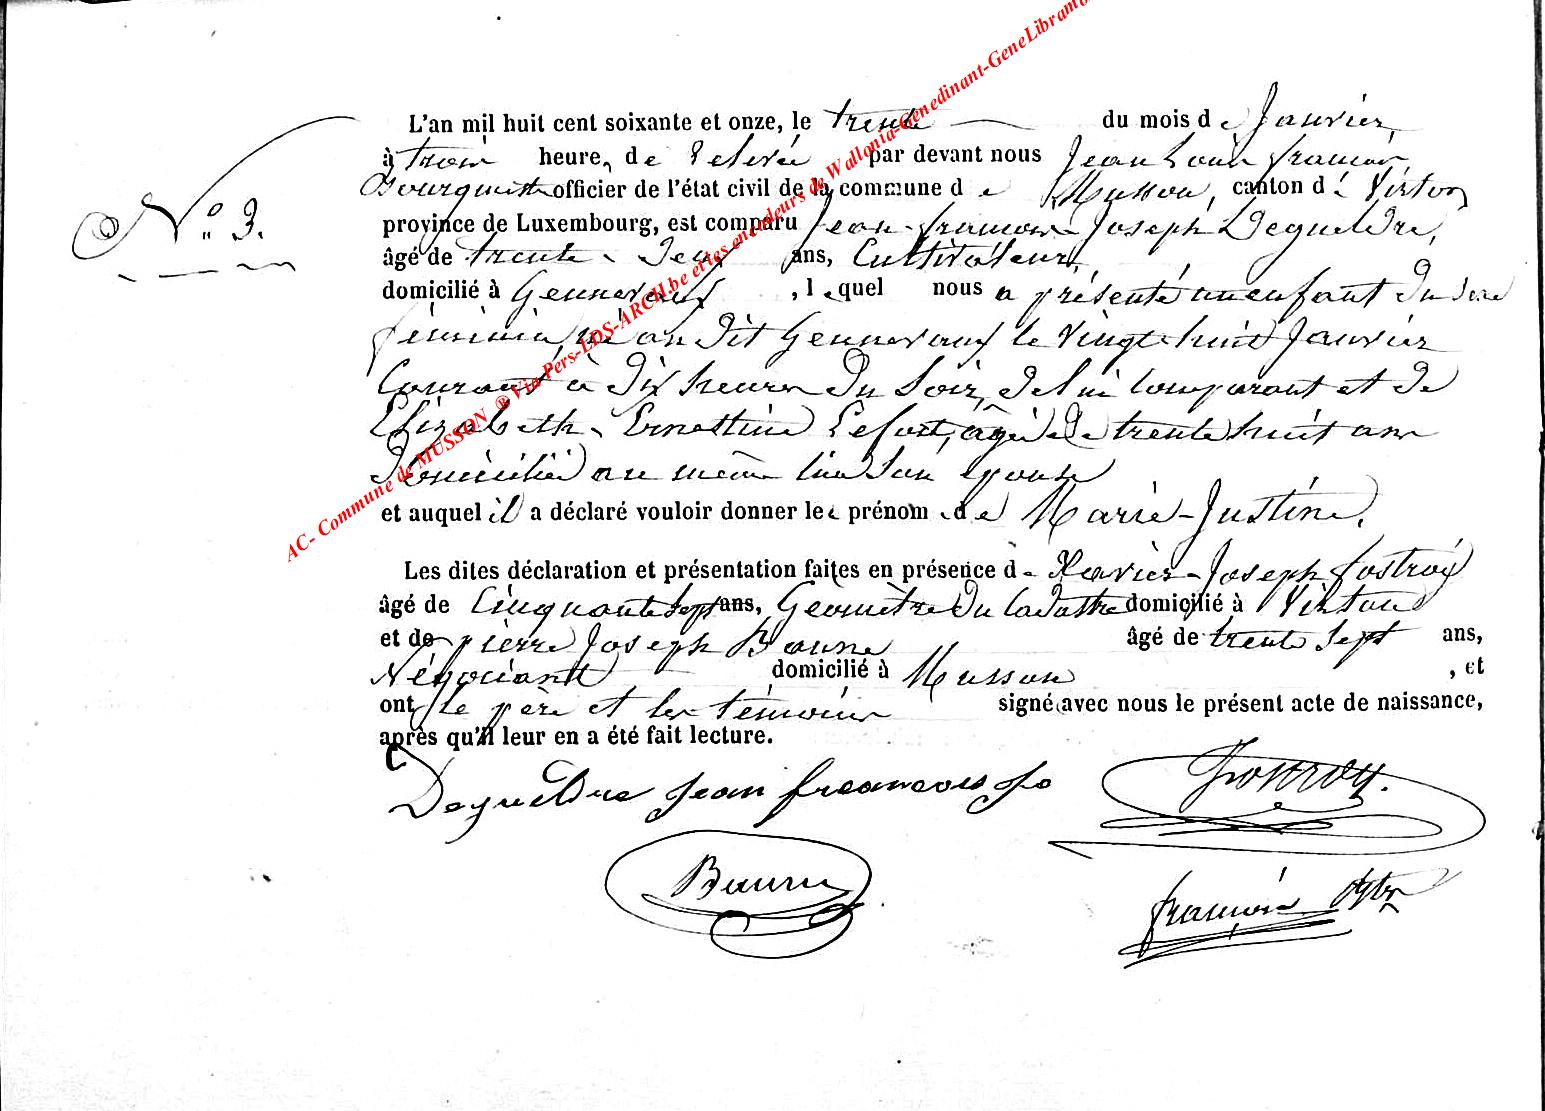 N° 3.
L'an mil huit cent soixante et onze, le trente du mois de Janvier,
à trois heures de relevée par devant nous Jean Louis François
Bourguest officier de l'état civil de la commune de Musson, canton de Virton
province de Luxembourg, est comparu Jean-François-Joseph Degueldre,
âgé de trente-deux ans, Cultivateur,
domicilié à Gennevaux, lequel nous a présenté un enfant du sexe
féminin, né au dit Gennevaux le vingt huit Janvier
Courant à dix heures du soir, de lui comparant et de
Elizabeth-Ernestine Lefort, âgée de trente huit ans
domiciliée au même lieu son épouse
et auquel il a déclaré vouloir donner les prénoms de Marie-Justine.
Les dites déclaration et présentation faites en présence de Xavier-Joseph
âgé de Cinquante sept ans, Géomètre du Cadastre domicilié à Virton
et de pierre Joseph Baune âgé de trente sept ans,
Négociant domicilié à Musson, et
ont le père et les témoins signé avec nous le présent acte de naissance,
après qu'il leur en a été fait lecture.
Degueldre jean freancois jo
Baune
françois
AC- Commune de MUSSON ® Via Pers-LDS-ARCH.be et les encodeurs de Wallonia-Genedinant-GeneLibramo